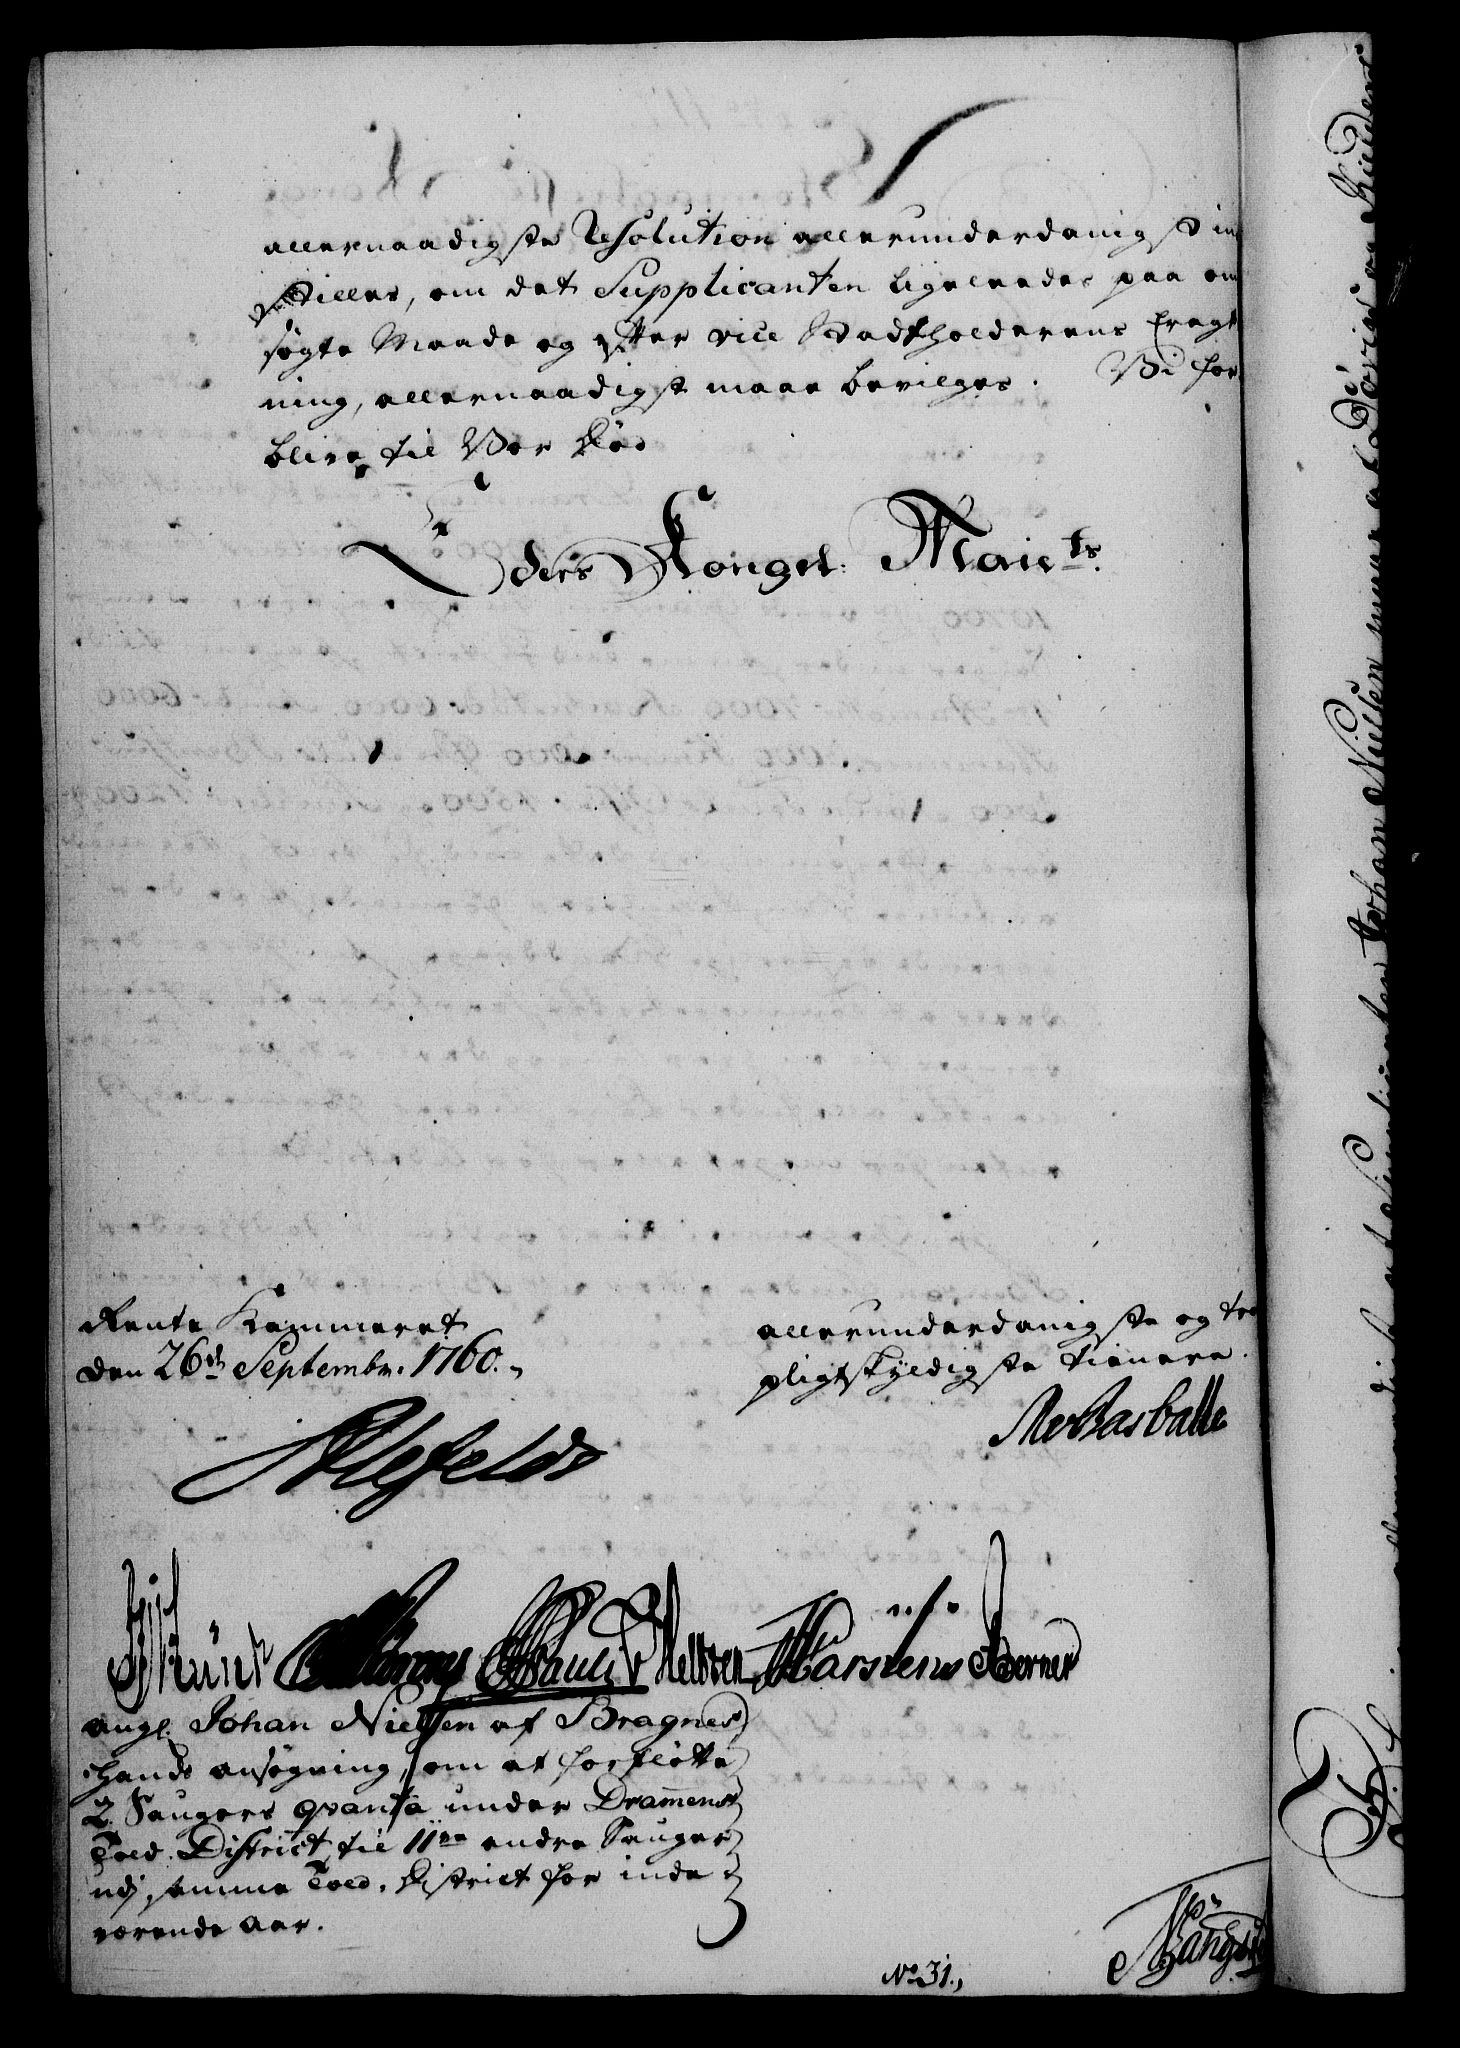 allernaadigste Resolution allerunderdanigst in
stilles, om det Supplicanten ligeledes paa om
søgte Maade og efter vice Stadtholderens Eragt
ning, allernaadigst maae bevilges. Vi for
blive til Vor Død
Eders Kongel: Maits.
Rente Kammeret
den 26de Septembr. 1760.
allerunderdanigste og troe
pligtskyldigste tienere.
Alefeldt
Pauli Karstens Berner
angl. Johan Nielsen af Bragnes
hands ansøgning, om at forfløtte
2. Saugers qvanta under Drammens
Told. District, til 11ve andre Sauger
udj samme Told. District for inde
værende Aar.
No 31.
Johan Nielsen maae